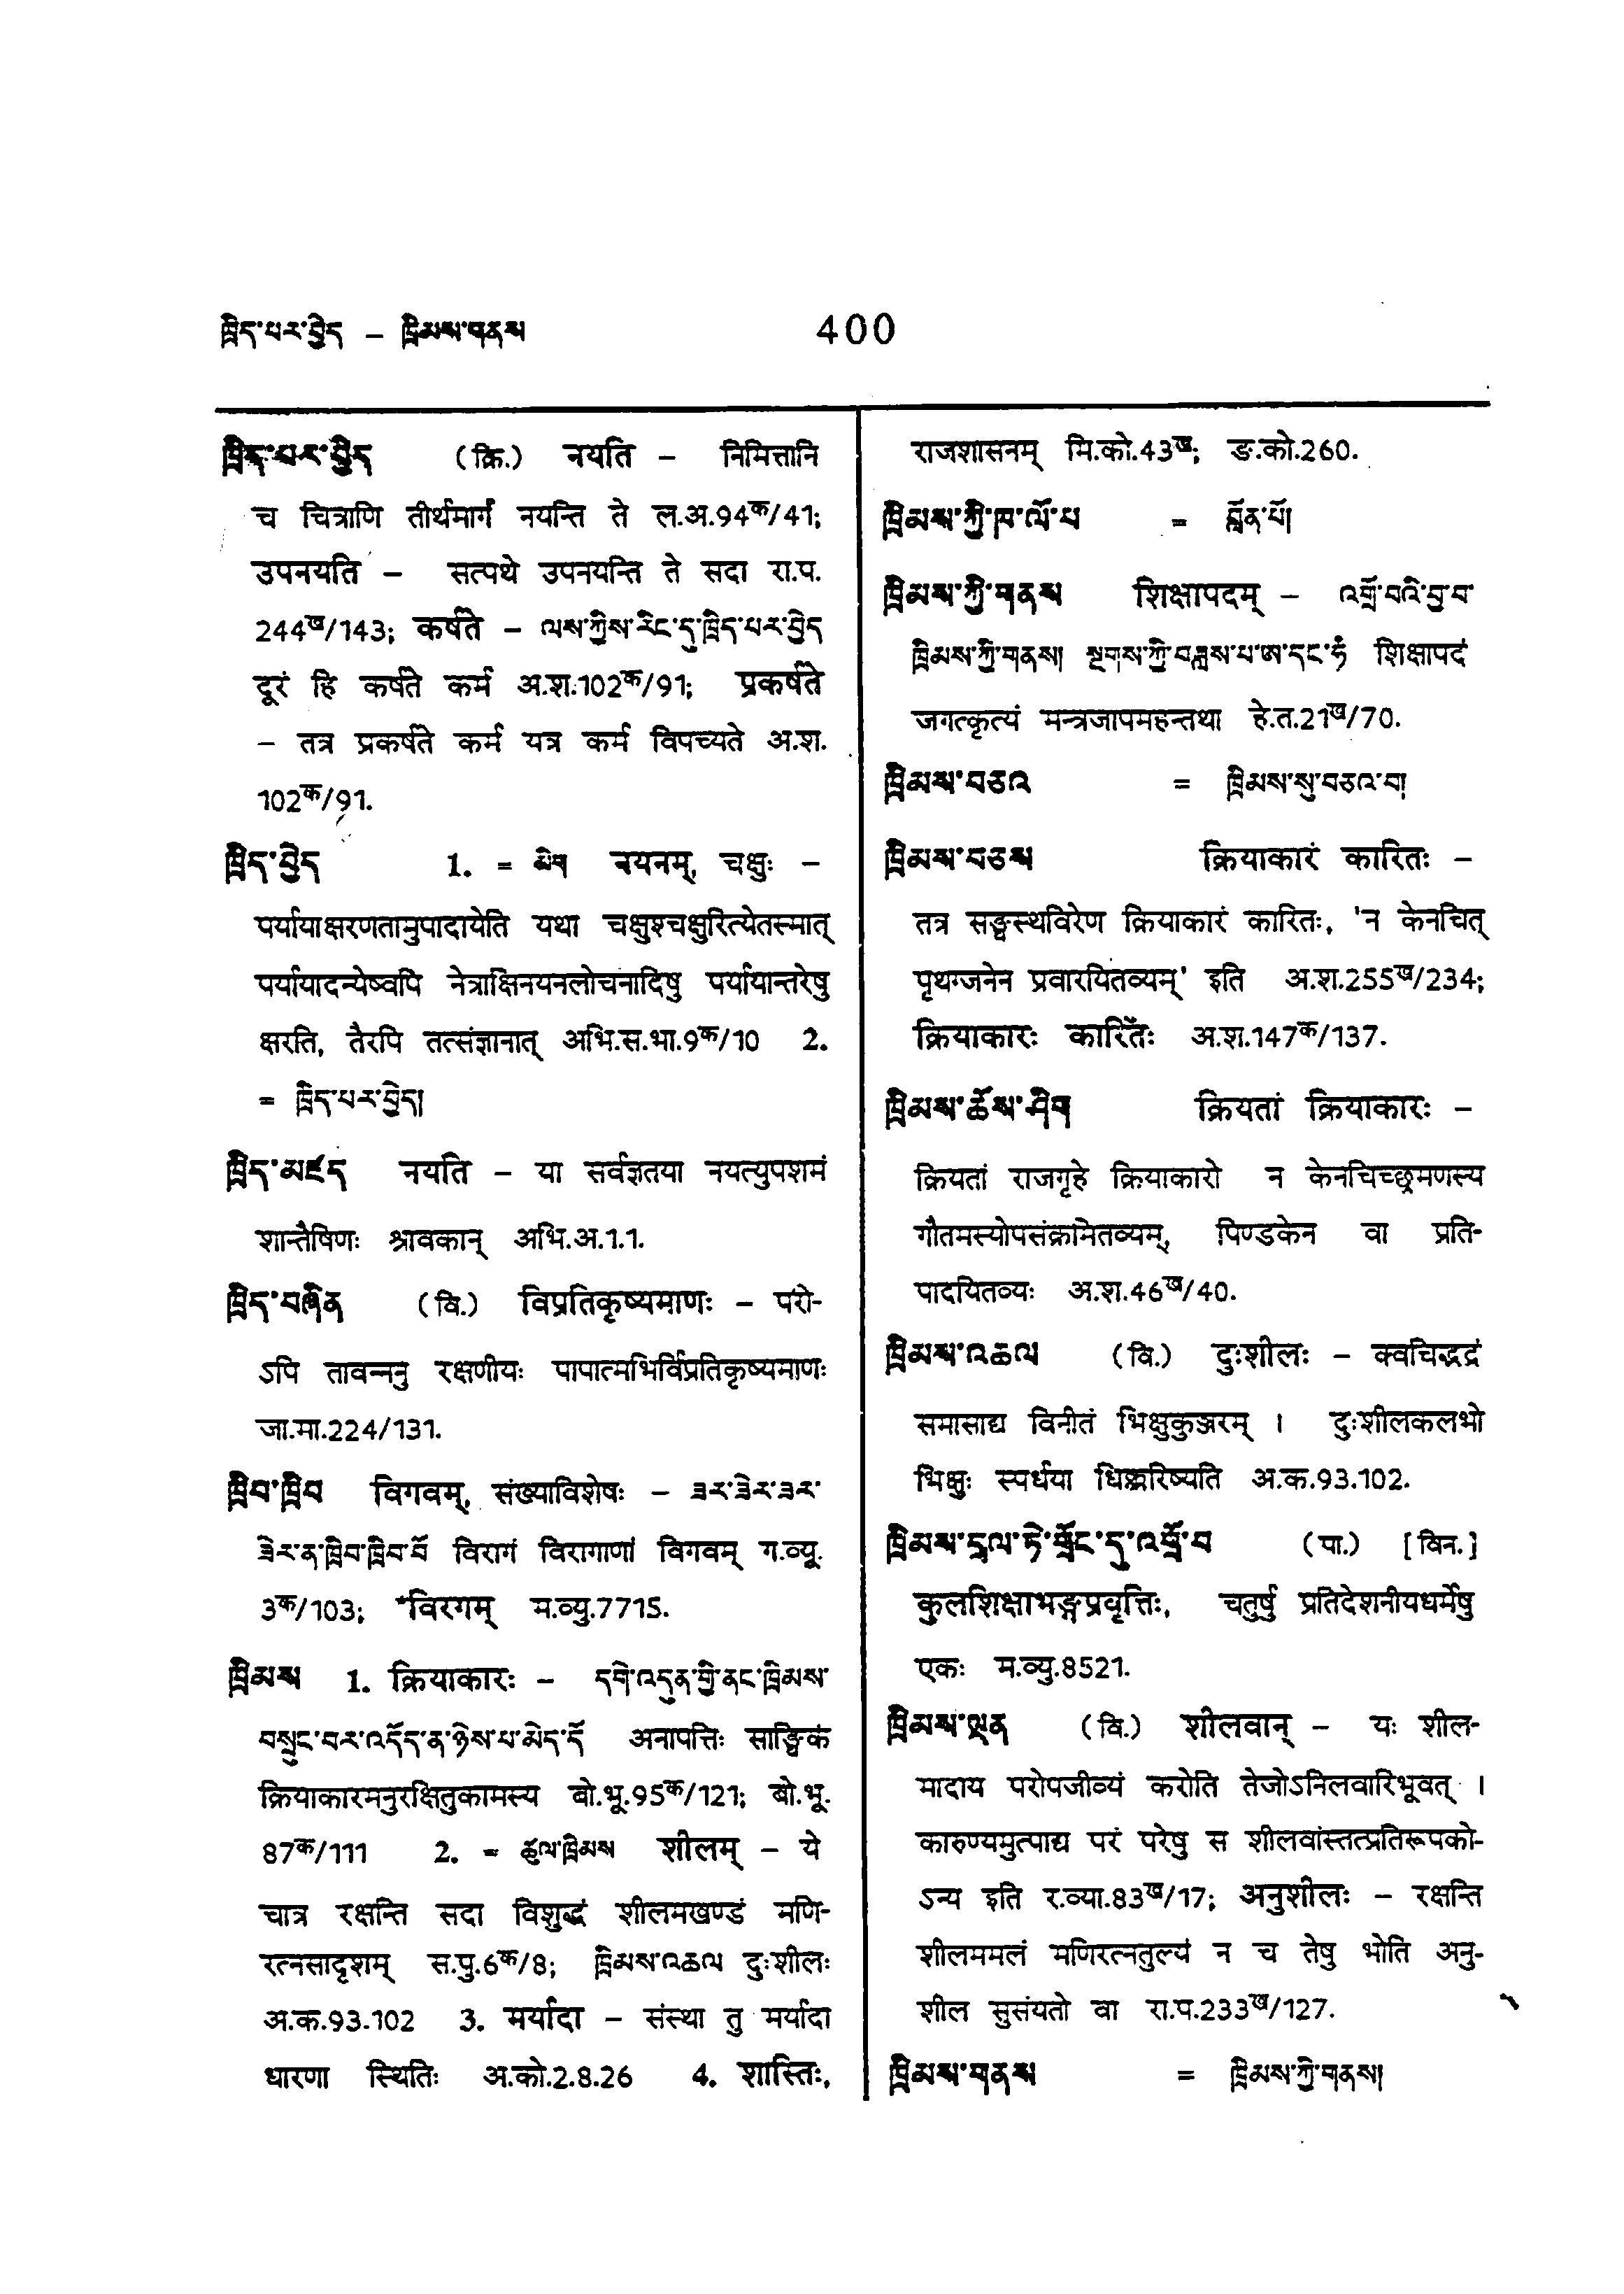 ཁྲིད་པར་བྱེད – ཁྲིམས་གནས 400
ཁྲིད་པར་བྱེད (क्रि.) नयति – निमित्तानि
च चित्राणि तीर्थमार्गं नयन्ति ते ल.अ.94क/41;
उपनयति – सत्पथे उपनयन्ति ते सदा रा.प.
244ख/143; कर्षते – ལས་ཀྱིས་རིང་དུ་ཁྲིད་པར་བྱེད
दूरं हि कर्षते कर्म अ.श.102क/91; प्रकर्षते
– तत्र प्रकर्षते कर्म यत्र कर्म विपच्यते अ.श.
102क/91.
ཁྲིད་བྱེད 1. = མིག नयनम्, चक्षुः –
पर्यायाक्षरणतामुपादायेति यथा चक्षुश्चक्षुरित्येतस्मात्
पर्यायादन्येष्वपि नेत्राक्षिनयनलोचनादिषु पर्यायान्तरेषु
क्षरति, तैरपि तत्संज्ञानात् अभि.स.भा.9क/10 2.
= ཁྲིད་པར་བྱེད།
ཁྲིད་མཛད नयति – या सर्वज्ञतया नयत्युपशमं
शान्तैषिणः श्रावकान् अभि.अ.1.1.
ཁྲིད་བཞིན (वि.) विप्रतिकृष्यमाणः – परो-
ऽपि तावन्ननु रक्षणीयः पापात्मभिर्विप्रतिकृष्यमाणः
जा.मा.224/131.
ཁྲིབ་ཁྲིབ विगवम्, संख्याविशेषः – ཟར་ཟེར་ཟར་
ཟེར་ན་ཁྲིབ་ཁྲིབ་བོ विरागं विरागाणां विगवम् ग.व्यू.
3क/103; *विरगम् म.व्यु.7715.
ཁྲིམས 1. क्रियाकारः – དགེ་འདུན་གྱི་ནང་ཁྲིམས་
བསྲུང་བར་འདོད་ན་ཉེས་པ་མེད་དོ अनापत्तिः साङ्घिकं
क्रियाकारमनुरक्षितुकामस्य बो.भू.95क/121; बो.भू.
87क/111 2. = ཚུལ་ཁྲིམས शीलम् – ये
चात्र रक्षन्ति सदा विशुद्धं शीलमखण्डं मणि-
रत्नसादृशम् स.पु.6क/8; ཁྲིམས་འཆལ दुःशीलः
अ.क.93.102 3. मर्यादा – संस्था तु मर्यादा
धारणा स्थितिः अ.को.2.8.26 4. शास्तिः,
राजशासनम् मि.को.43ख; ङ.को.260.
ཁྲིམས་ཀྱི་ཁ་ལོ་པ = བློན་པོ།
ཁྲིམས་ཀྱི་གནས शिक्षापदम् – འགྲོ་བའི་བྱ་བ་
ཁྲིམས་ཀྱི་གནས། སྔགས་ཀྱི་བཟླས་པ་ཨ་དང་ཧཾ शिक्षापदं
जगत्कृत्यं मन्त्रजापमहन्तथा हे.त.21ख/70.
ཁྲིམས་བཅའ = ཁྲིམས་སུ་བཅའ་བ།
ཁྲིམས་བཅས क्रियाकारं कारितः –
तत्र सङ्घस्थविरेण क्रियाकारं कारितः, 'न केनचित्
पृथग्जनेन प्रवारयितव्यम्' इति अ.श.255ख/234;
क्रियाकारः कारितः अ.श.147क/137.
ཁྲིམས་ཆོས་ཤིག क्रियतां क्रियाकारः –
क्रियतां राजगृहे क्रियाकारो न केनचिच्छ्रमणस्य
गौतमस्योपसंक्रमितव्यम्, पिण्डकेन वा प्रति-
पादयितव्यः अ.श.46ख/40.
ཁྲིམས་འཆལ (वि.) दुःशीलः – क्वचिद्भद्रं
समासाद्य विनीतं भिक्षुकुञ्जरम् । दुःशीलकलभो
भिक्षुः स्पर्धया धिक्करिष्यति अ.क.93.102.
ཁྲིམས་དྲལ་ཏེ་གྲོང་དུ་འགྲོ་བ (पा.) [विन.]
कुलशिक्षाभङ्गप्रवृत्तिः, चतुर्षु प्रतिदेशनीयधर्मेषु
एकः म.व्यु.8521.
ཁྲིམས་ལྡན (वि.) शीलवान् – यः शील-
मादाय परोपजीव्यं करोति तेजोऽनिलवारिभूवत् ।
कारुण्यमुत्पाद्य परं परेषु स शीलवांस्तत्प्रतिरूपको-
ऽन्य इति र.व्या.83ख/17; अनुशीलः – रक्षन्ति
शीलममलं मणिरत्नतुल्यं न च तेषु भोति अनु-
शील सुसंयतो वा रा.प.233ख/127.
ཁྲིམས་གནས = ཁྲིམས་ཀྱི་གནས།